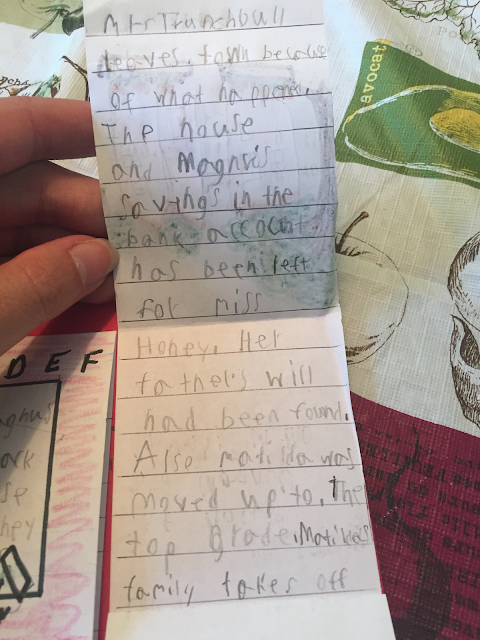 Mrs Trunchbull
leaves. town because
of what happened.
The house
and Magnus
savings in the
bank account
has been left
for miss
Honey. Her
father's will
had been found.
Also matilda was
moved up to. The
top grade. Matildas
family takes off
avocat
D E F